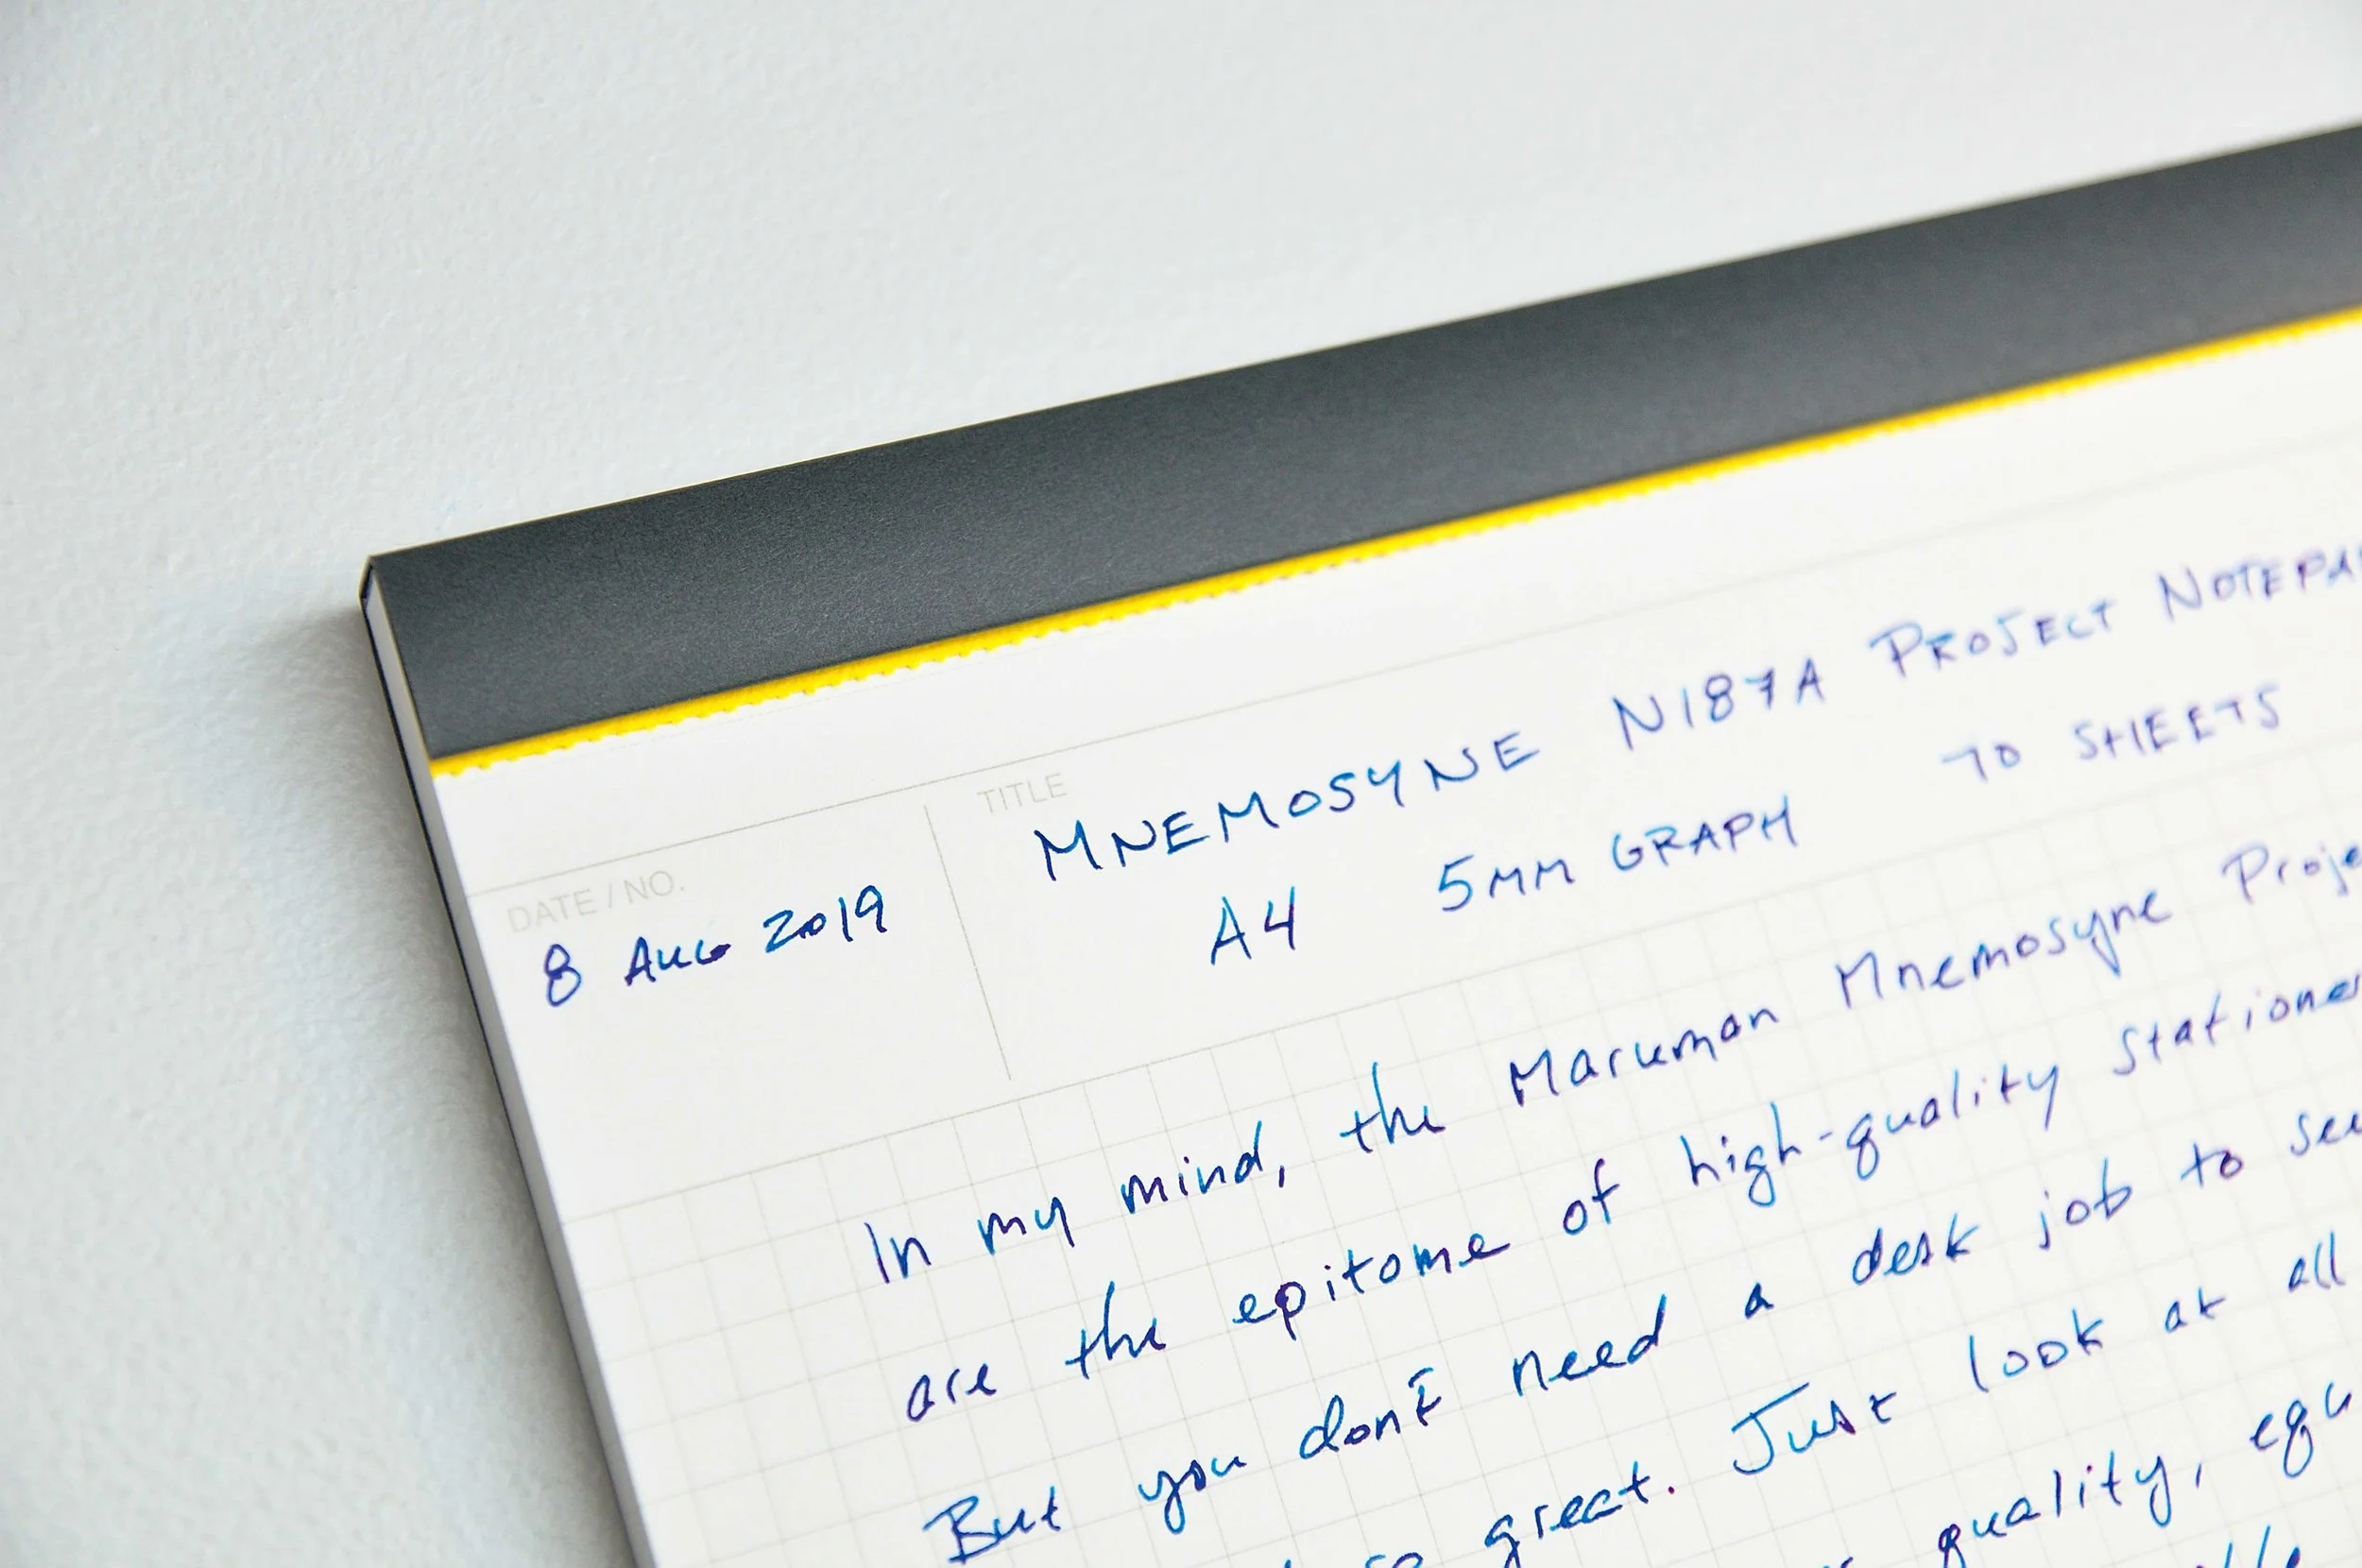 TITLE
MNEMOSYNE N187A PROJECT NOTEPA
DATE / NO.
8 AUG 2019
A4 5MM GRAPH 70 SHEETS
In my mind, the Maruman Mnemosyne Proje
are the epitome of high-quality stationer
But you don't need a desk job to see
so great. Just look at all
quality, equ